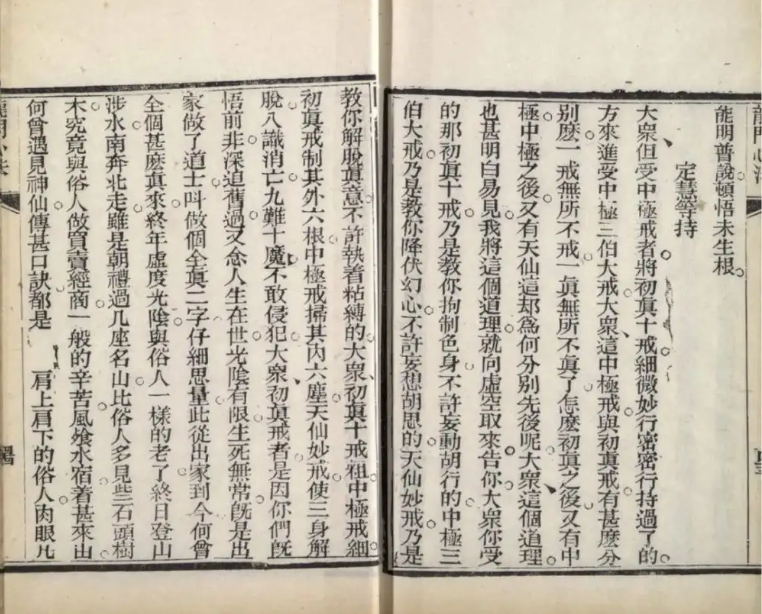 龍門心法
能明普說頓悟未生根
定慧等持
大衆但受中極戒者將初眞十戒細微妙行密密行持過了的
方來進受中極三伯大戒大衆這中極戒與初眞戒有甚麽分
別麽一戒無所不戒一眞無所不眞了怎麽初眞之後又有中
極中極之後又有天仙這却爲何分別先後呢大衆這個道理
也甚明白易見我將這個道理就向虛空取來告你大衆你受
的那初眞十戒乃是教你拘制色身不許妄動胡行的中極三
伯大戒乃是教你降伏幻心不許妄想胡思的天仙妙戒乃是
教你解脫眞意不許執着枯縛的大衆初眞十戒粗中極戒細
初眞戒制其外六根中極戒掃其內六塵天仙妙戒使三身解
脫八識消亡九難十魔不敢侵犯大衆初眞戒者是因你們旣
悟前非深追舊過又念人生在世光陰有限生死無常旣是出
家做了道士呌做個全眞二字仔細思量此從出家到今何曾
全個甚麽眞來終年虛度光陰與俗人一樣的老了終日登山
涉水南奔北走雖是朝禮過几座名山比俗人多見些石頭樹
木究竟與俗人做買賣經商一般的辛苦風飧水宿着甚來由
何曾遇見神仙傳甚口訣都是 肩上肩下的俗人肉眼凡
龍門心法